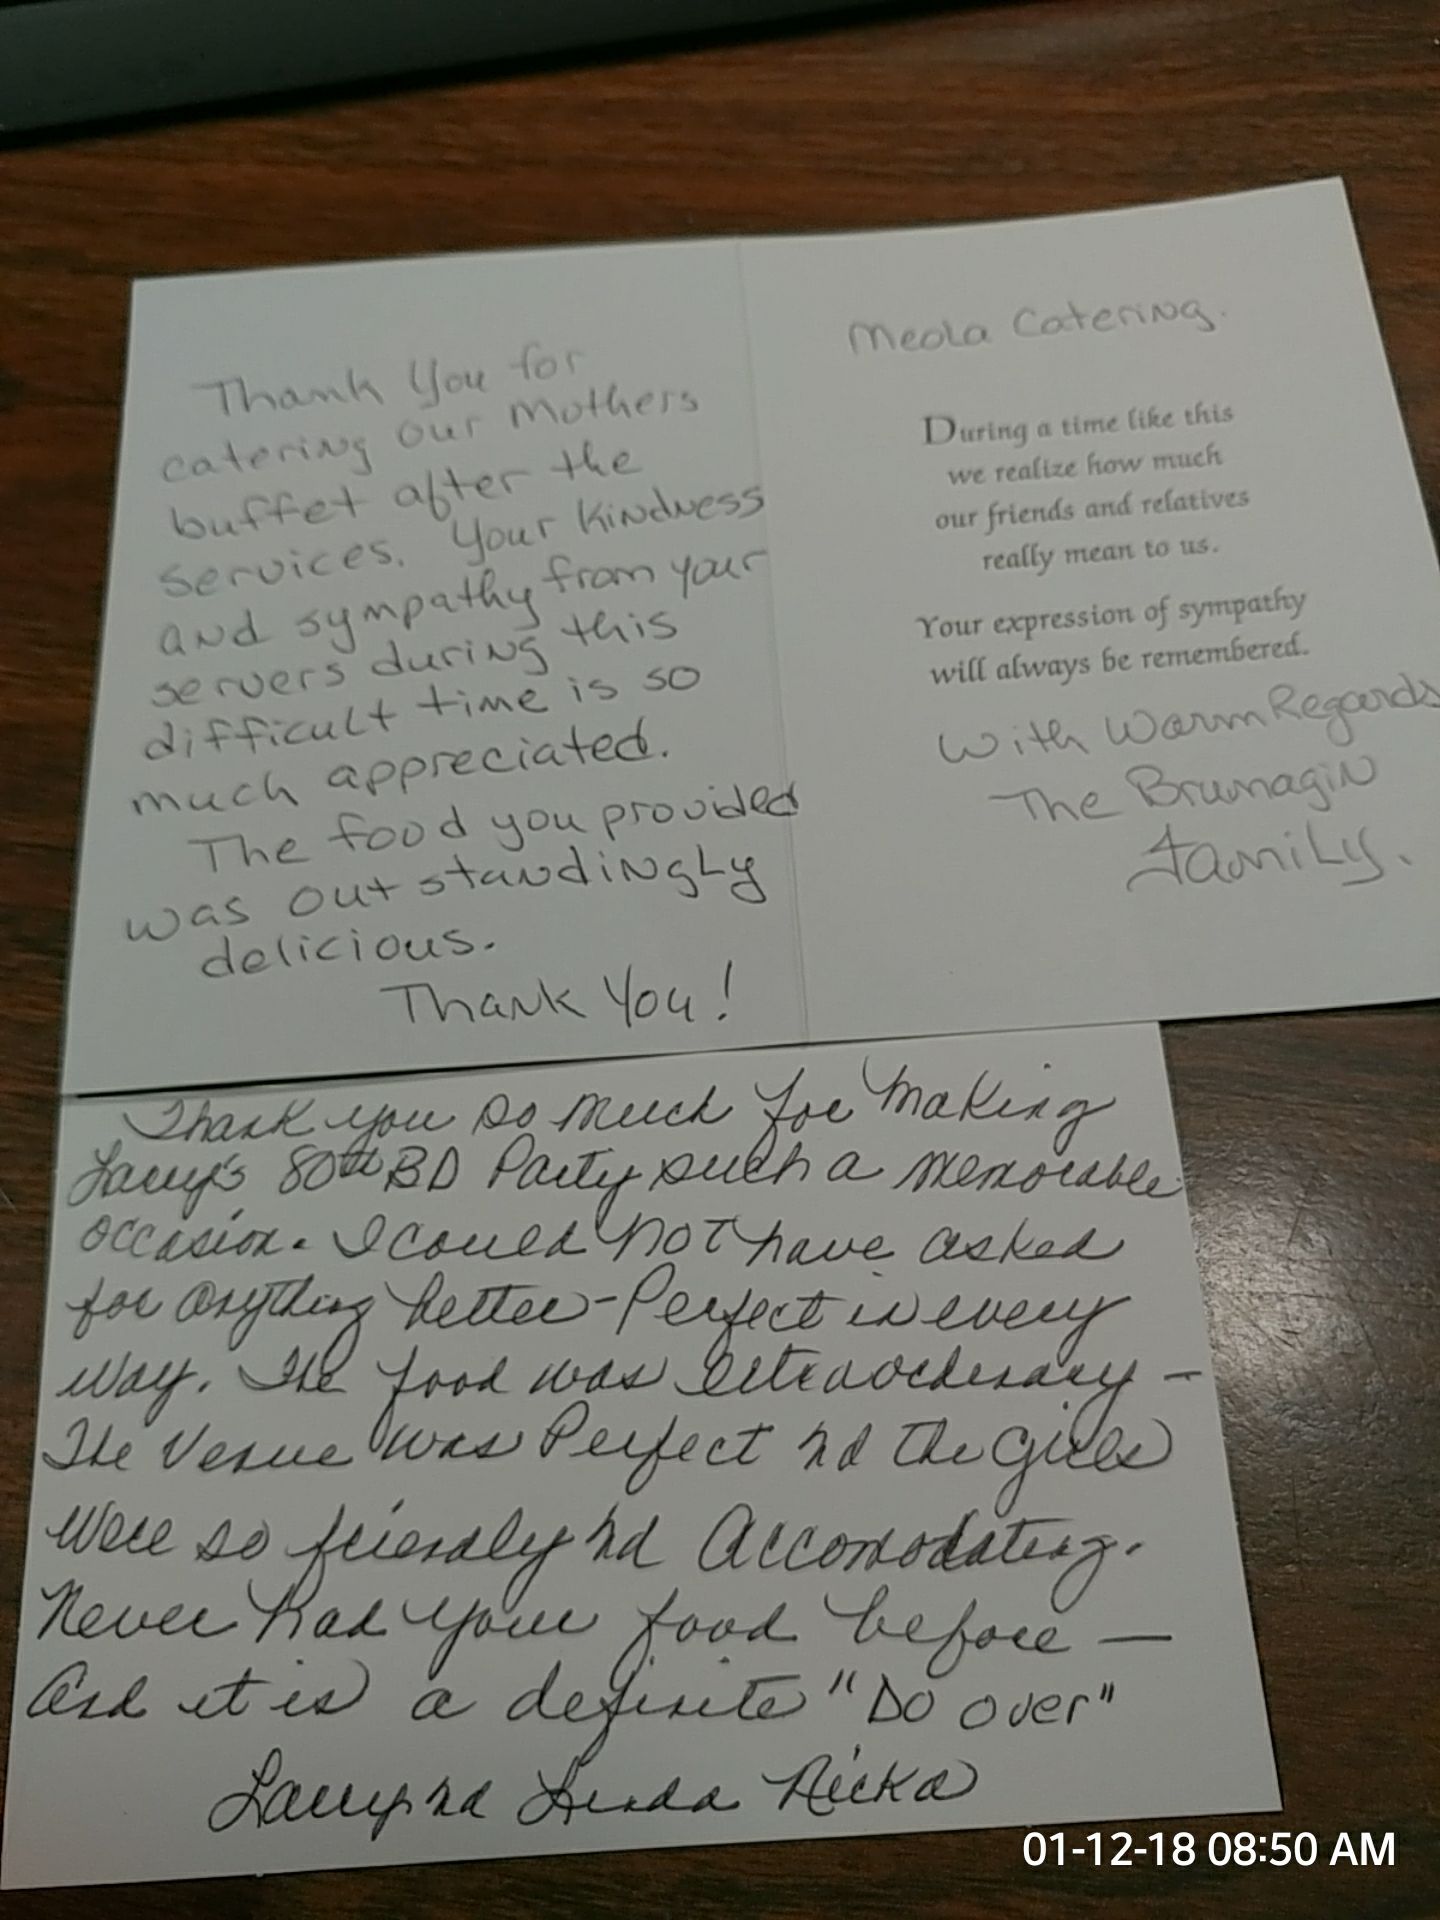 Thank You for
catering our mothers
buffet after the
services. Your kindness
and sympathy from your
servers during this
difficult time is so
much appreciated.
The food you provided
was outstandingly
delicious.
Thank You!
Meola Catering.
During a time like this
we realize how much
our friends and relatives
really mean to us.
Your expression of sympathy
will always be remembered.
With Warm Regards
The Brumagin
Family.
Thank you so much for making
Larry's 80th BD Party such a memorable
occasion. I could not have asked
for anything better - Perfect in every
way. The food was extraordinary -
The Venue was Perfect nd the girls
were so friendly nd Accomodating.
Never had your food before -
And it is a definite "Do over"
Larry nd Linda Ricka
01-12-18 08:50 AM